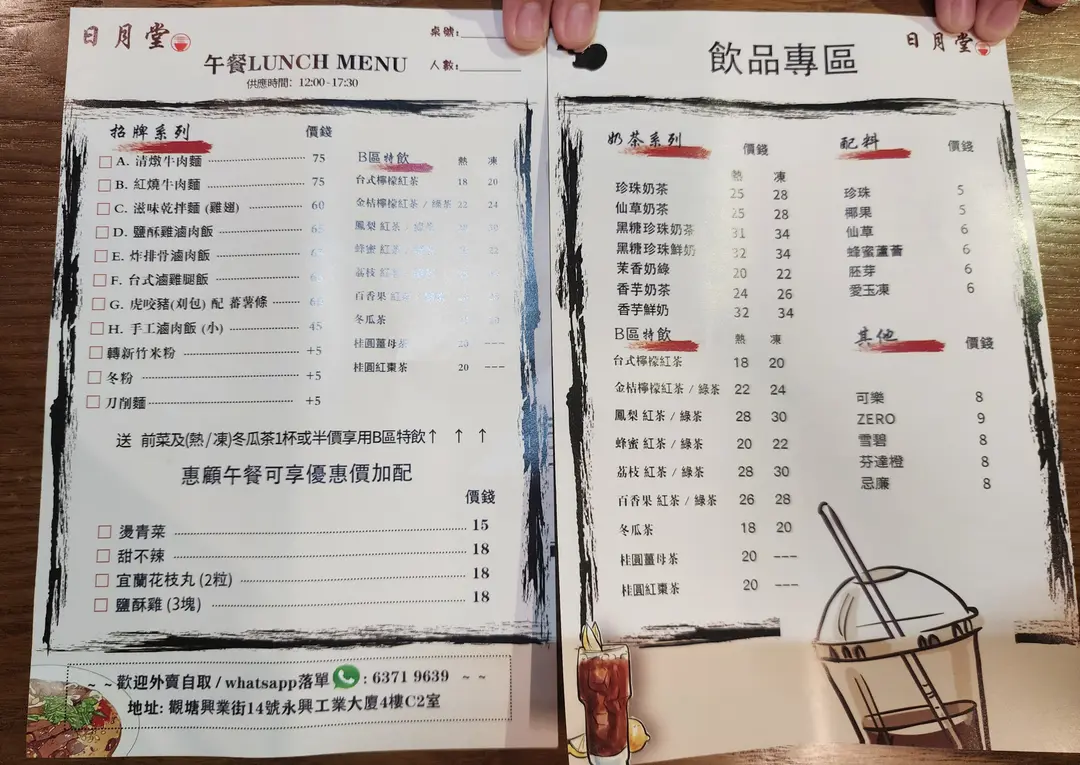 日月堂
桌號:
午餐LUNCH MENU
人數:
供應時間: 12:00-17:30
招牌系列 價錢
A. 清燉牛肉麵 75
B. 紅燒牛肉麵 75
C. 滋味乾拌麵 (雞翅) 60
D. 鹽酥雞滷肉飯
E. 炸排骨滷肉飯
F. 台式滷雞腿飯
G. 虎咬豬(刈包) 配 蕃薯條
H. 手工滷肉飯 (小) 45
轉新竹米粉 +5
冬粉 +5
刀削麵 +5
B區特飲 熱 凍
台式檸檬紅茶 18 20
金桔檸檬紅茶 / 綠茶 22 24
鳳梨 紅茶 / 綠茶 30
蜂蜜 紅茶 22
荔枝 紅茶
百香果 紅茶
冬瓜茶 20
桂圓薑母茶 20 ---
桂圓紅棗茶 20 ---
送 前菜及(熱/凍)冬瓜茶1杯或半價享用B區特飲↑ ↑ ↑
惠顧午餐可享優惠價加配
價錢
燙青菜 15
甜不辣 18
宜蘭花枝丸 (2粒) 18
鹽酥雞 (3塊) 18
~ ~歡迎外賣自取 / whatsapp落單 : 6371 9639 ~ ~
地址: 觀塘興業街14號永興工業大廈4樓C2室
日月堂
飲品專區
奶茶系列 價錢
熱 凍
珍珠奶茶 25 28
仙草奶茶 25 28
黑糖珍珠奶茶 31 34
黑糖珍珠鮮奶 32 34
茉香奶綠 20 22
香芋奶茶 24 26
香芋鮮奶 32 34
B區特飲 熱 凍
台式檸檬紅茶 18 20
金桔檸檬紅茶 / 綠茶 22 24
鳳梨 紅茶 / 綠茶 28 30
蜂蜜 紅茶 / 綠茶 20 22
荔枝 紅茶 / 綠茶 28 30
百香果 紅茶 / 綠茶 26 28
冬瓜茶 18 20
桂圓薑母茶 20 ---
桂圓紅棗茶 20 ---
配料 價錢
珍珠 5
椰果 5
仙草 6
蜂蜜蘆薈 6
胚芽 6
愛玉凍 6
其他 價錢
可樂 8
ZERO 9
雪碧 8
芬達橙 8
忌廉 8